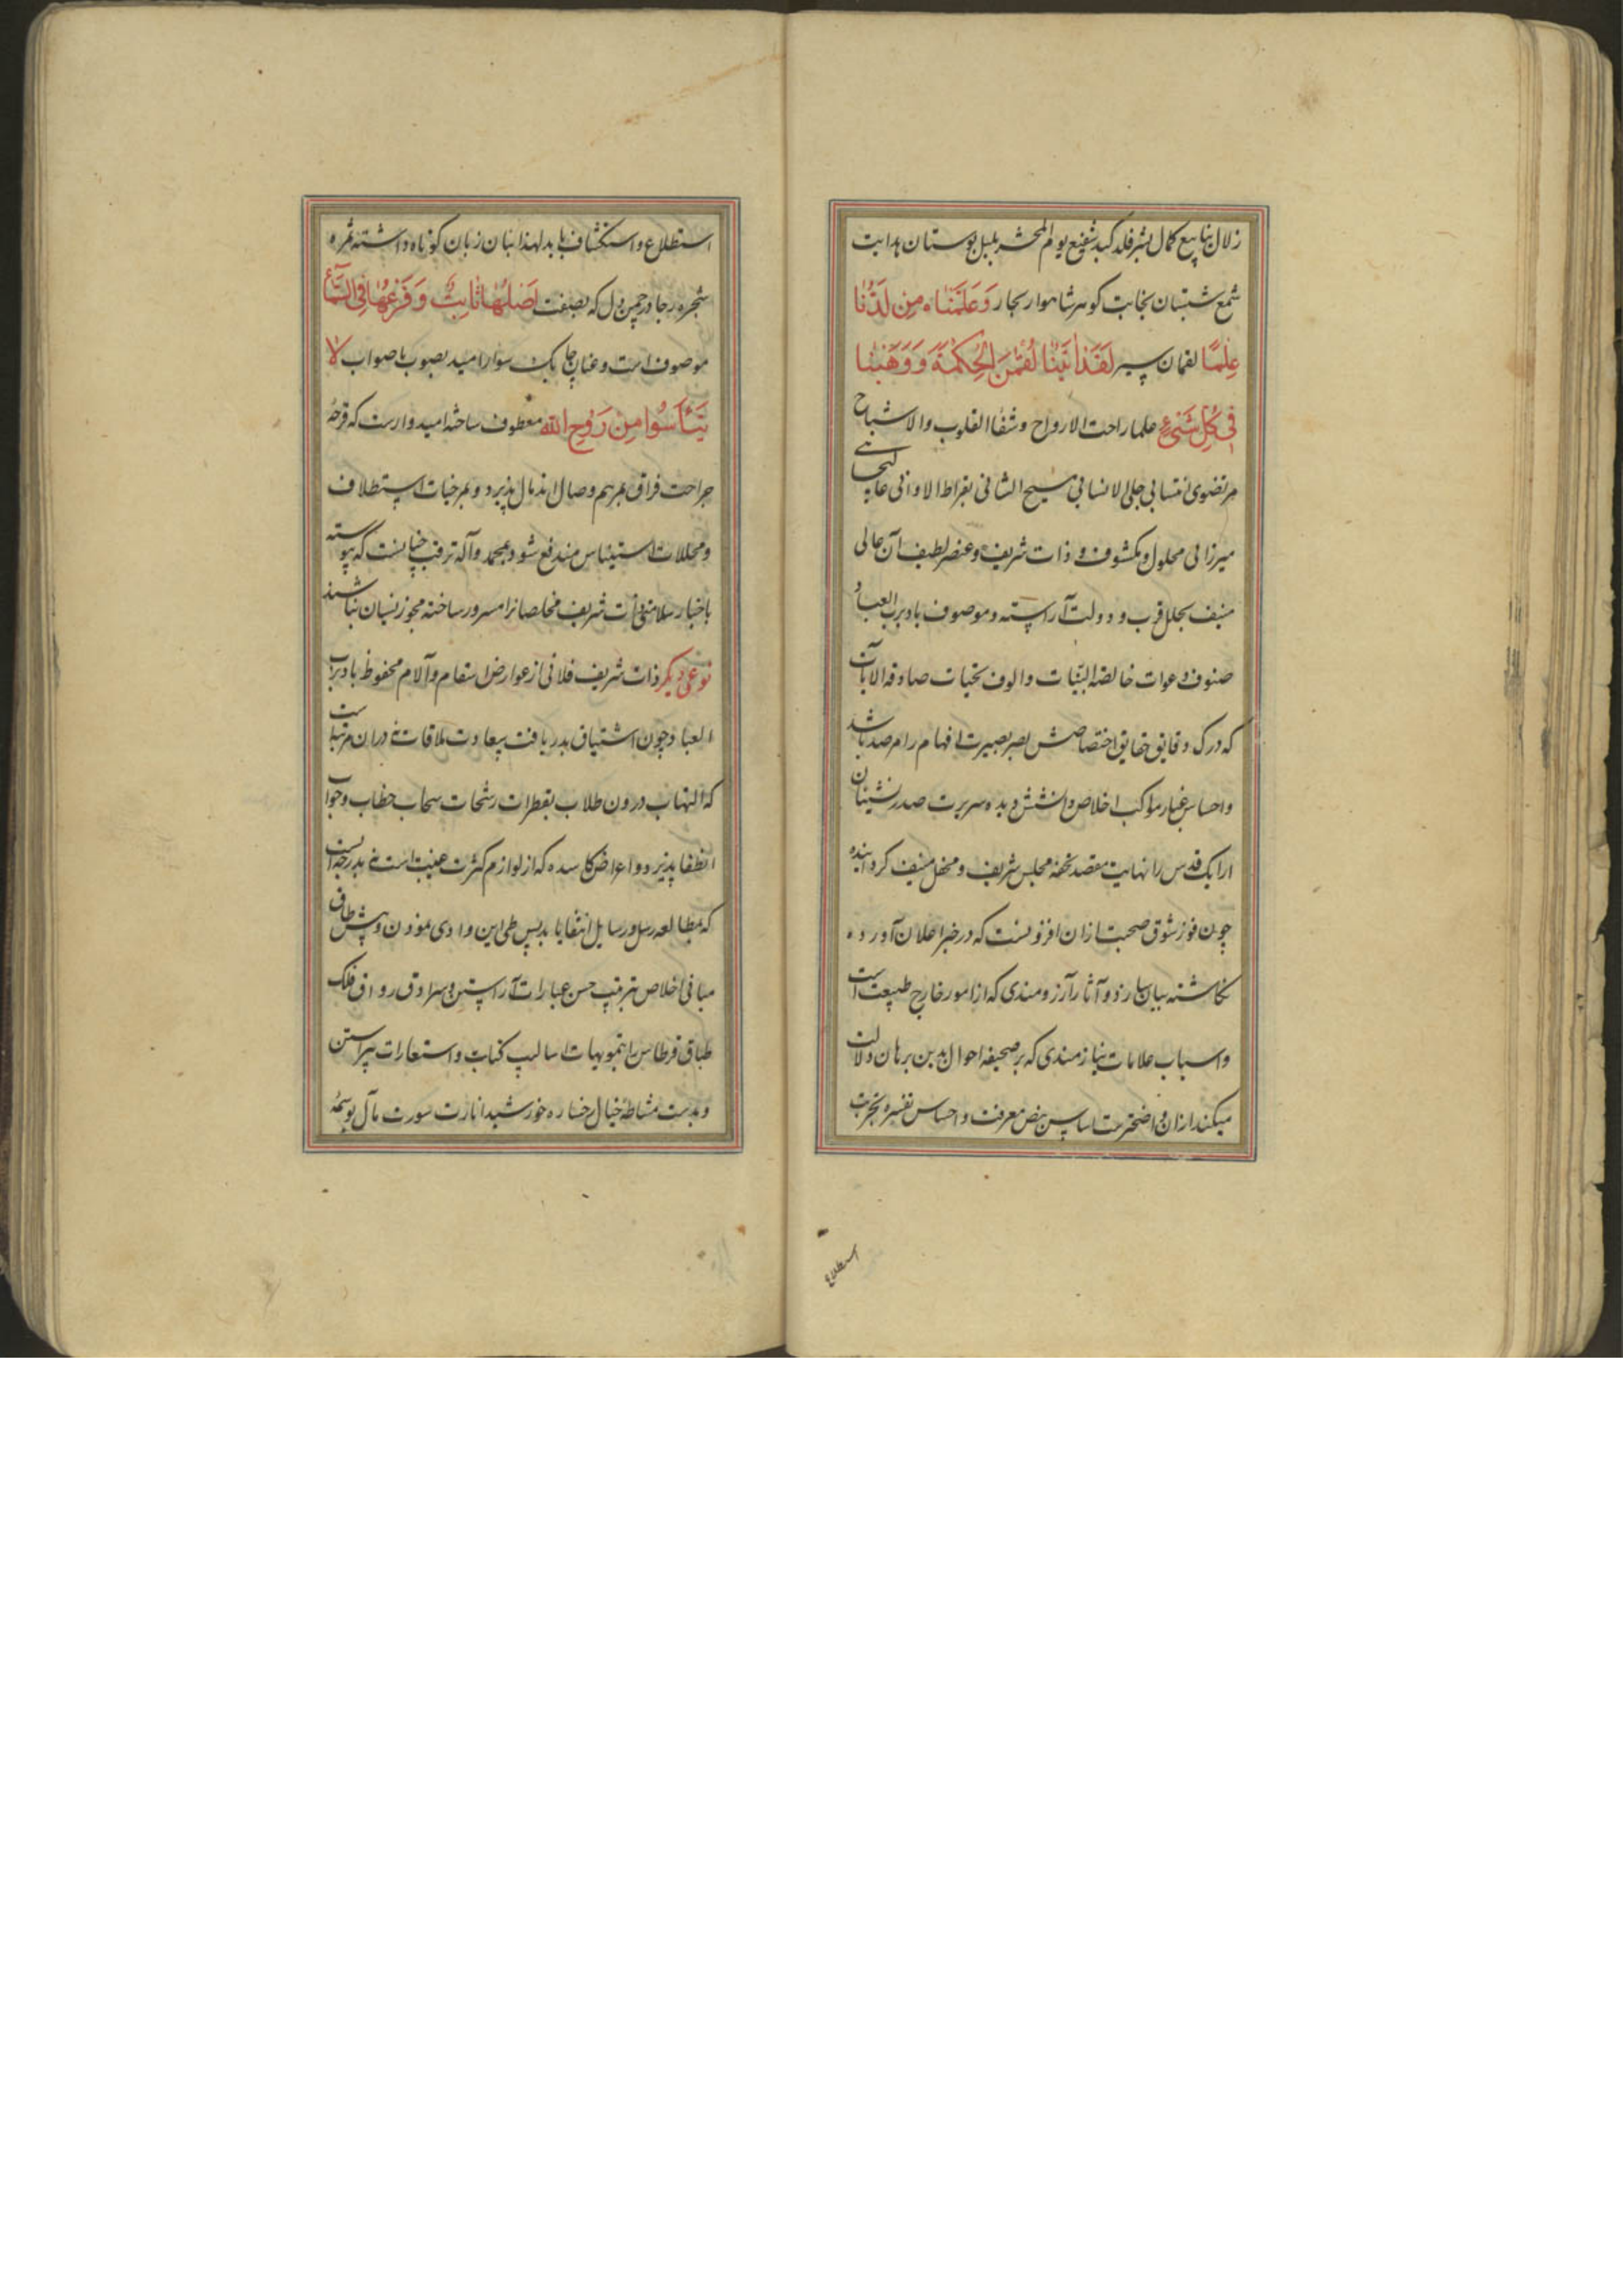 زلال ینابیع کمال بشر فلذ کبد شفیع یوم المحشر بلبل بوستان هدایت
شمع شبستان نجابت گوهر شاهوار بحار وَعَلَّمْنَاهُ مِن لَدُنَّا
عِلْمًا لقمان سیر لَقَدْ اٰتَیْنَا لُقْمٰنَ الْحِکْمَةَ وَوَهَبْنَا
فی کُلِّ شَیْءٍ علما راحت الارواح و شفاء القلوب والاشباح
مرتضوی انتسابی جلی الانسابی مسیح الثانی بقراط الاوانی
میرزائی محلول و مکشوف و ذات شریف و عنصر لطیف آن عالی
منیف بحلل قرب و دولت آراسته و موصوف باد برب العباد
صنوف دعوات خالصة النیات و الوف تحیات صادقه الایات
که درک دقایق حقایق اختصاصش بصر بصیرت افهام را مرصد باشد
و احساس غبار مواکب اخلاص دیده سریرت صدر نشینان
ارایک قدس را نهایت مقصد تحفه مجلس شریف و محفل منیف گردانیده
چون فوز شوق صحبت ازان افزونست که در حیز اعلان آورده
نگاشته بیان سازد و آثار آرزومندی که از امور خارج طبیعت است
و اسباب علامات نیازمندی که بر صحیفه احوال بدین برهان دلالت
میکند ازان واضحتر ست اساس نبض معرفت و احساس تفسره تجربت
استطلاع
استطلاع و استکشاف یابد لهذا بنان زبان کوتاه داشته ثمره
شجره رجا در چمن دل که بصفت اَصْلُهَا ثَابِتٌ وَفَرْعُهَا فِی السَّمَاء
موصوف است و عنان چابک سوار امید بصوب با صواب لا
تَیْأَسُوا مِن رَوْحِ الله معطوف ساخته امیدوارست که قرحهٔ
جراحت فراق بمرهم وصال اندمال پذیرد و بمرخیات استطلاف
و محللات استیناس مندفع شود بمحمد وآله ترقب چنانست که پیوسته
باخبار سلامتی ذات شریف مخلصانرا مسرور ساخته مجوز نسیان نباشند
نوعی دیگر ذات شریف فلانی از عوارض اسقام و آلام محفوظ باد برب
العباد و چون اشتیاق بدریافت سعادت ملاقات نه دران مرتبه است
که التهاب درون طلاب بقطرات رشحات سحاب خطاب و جواب
انطفا پذیرد و اعراض کاسده که از لوازم کثرت غیبت است نه بدرجه ایست
که بمطالعه رسل و رسایل انتفا یابد پس طی این وادی نمودن و پیش طاق
مبانی اخلاص بترتیب حسن عبارات آراستن و سرادق رواق فلک
طباق قرطاس را بتمویهات اسالیب کنایت و استعارات پیراستن
و بدست مشاطهٔ خیال رخساره خورشید انارت صورت مآل بوسمهٔ